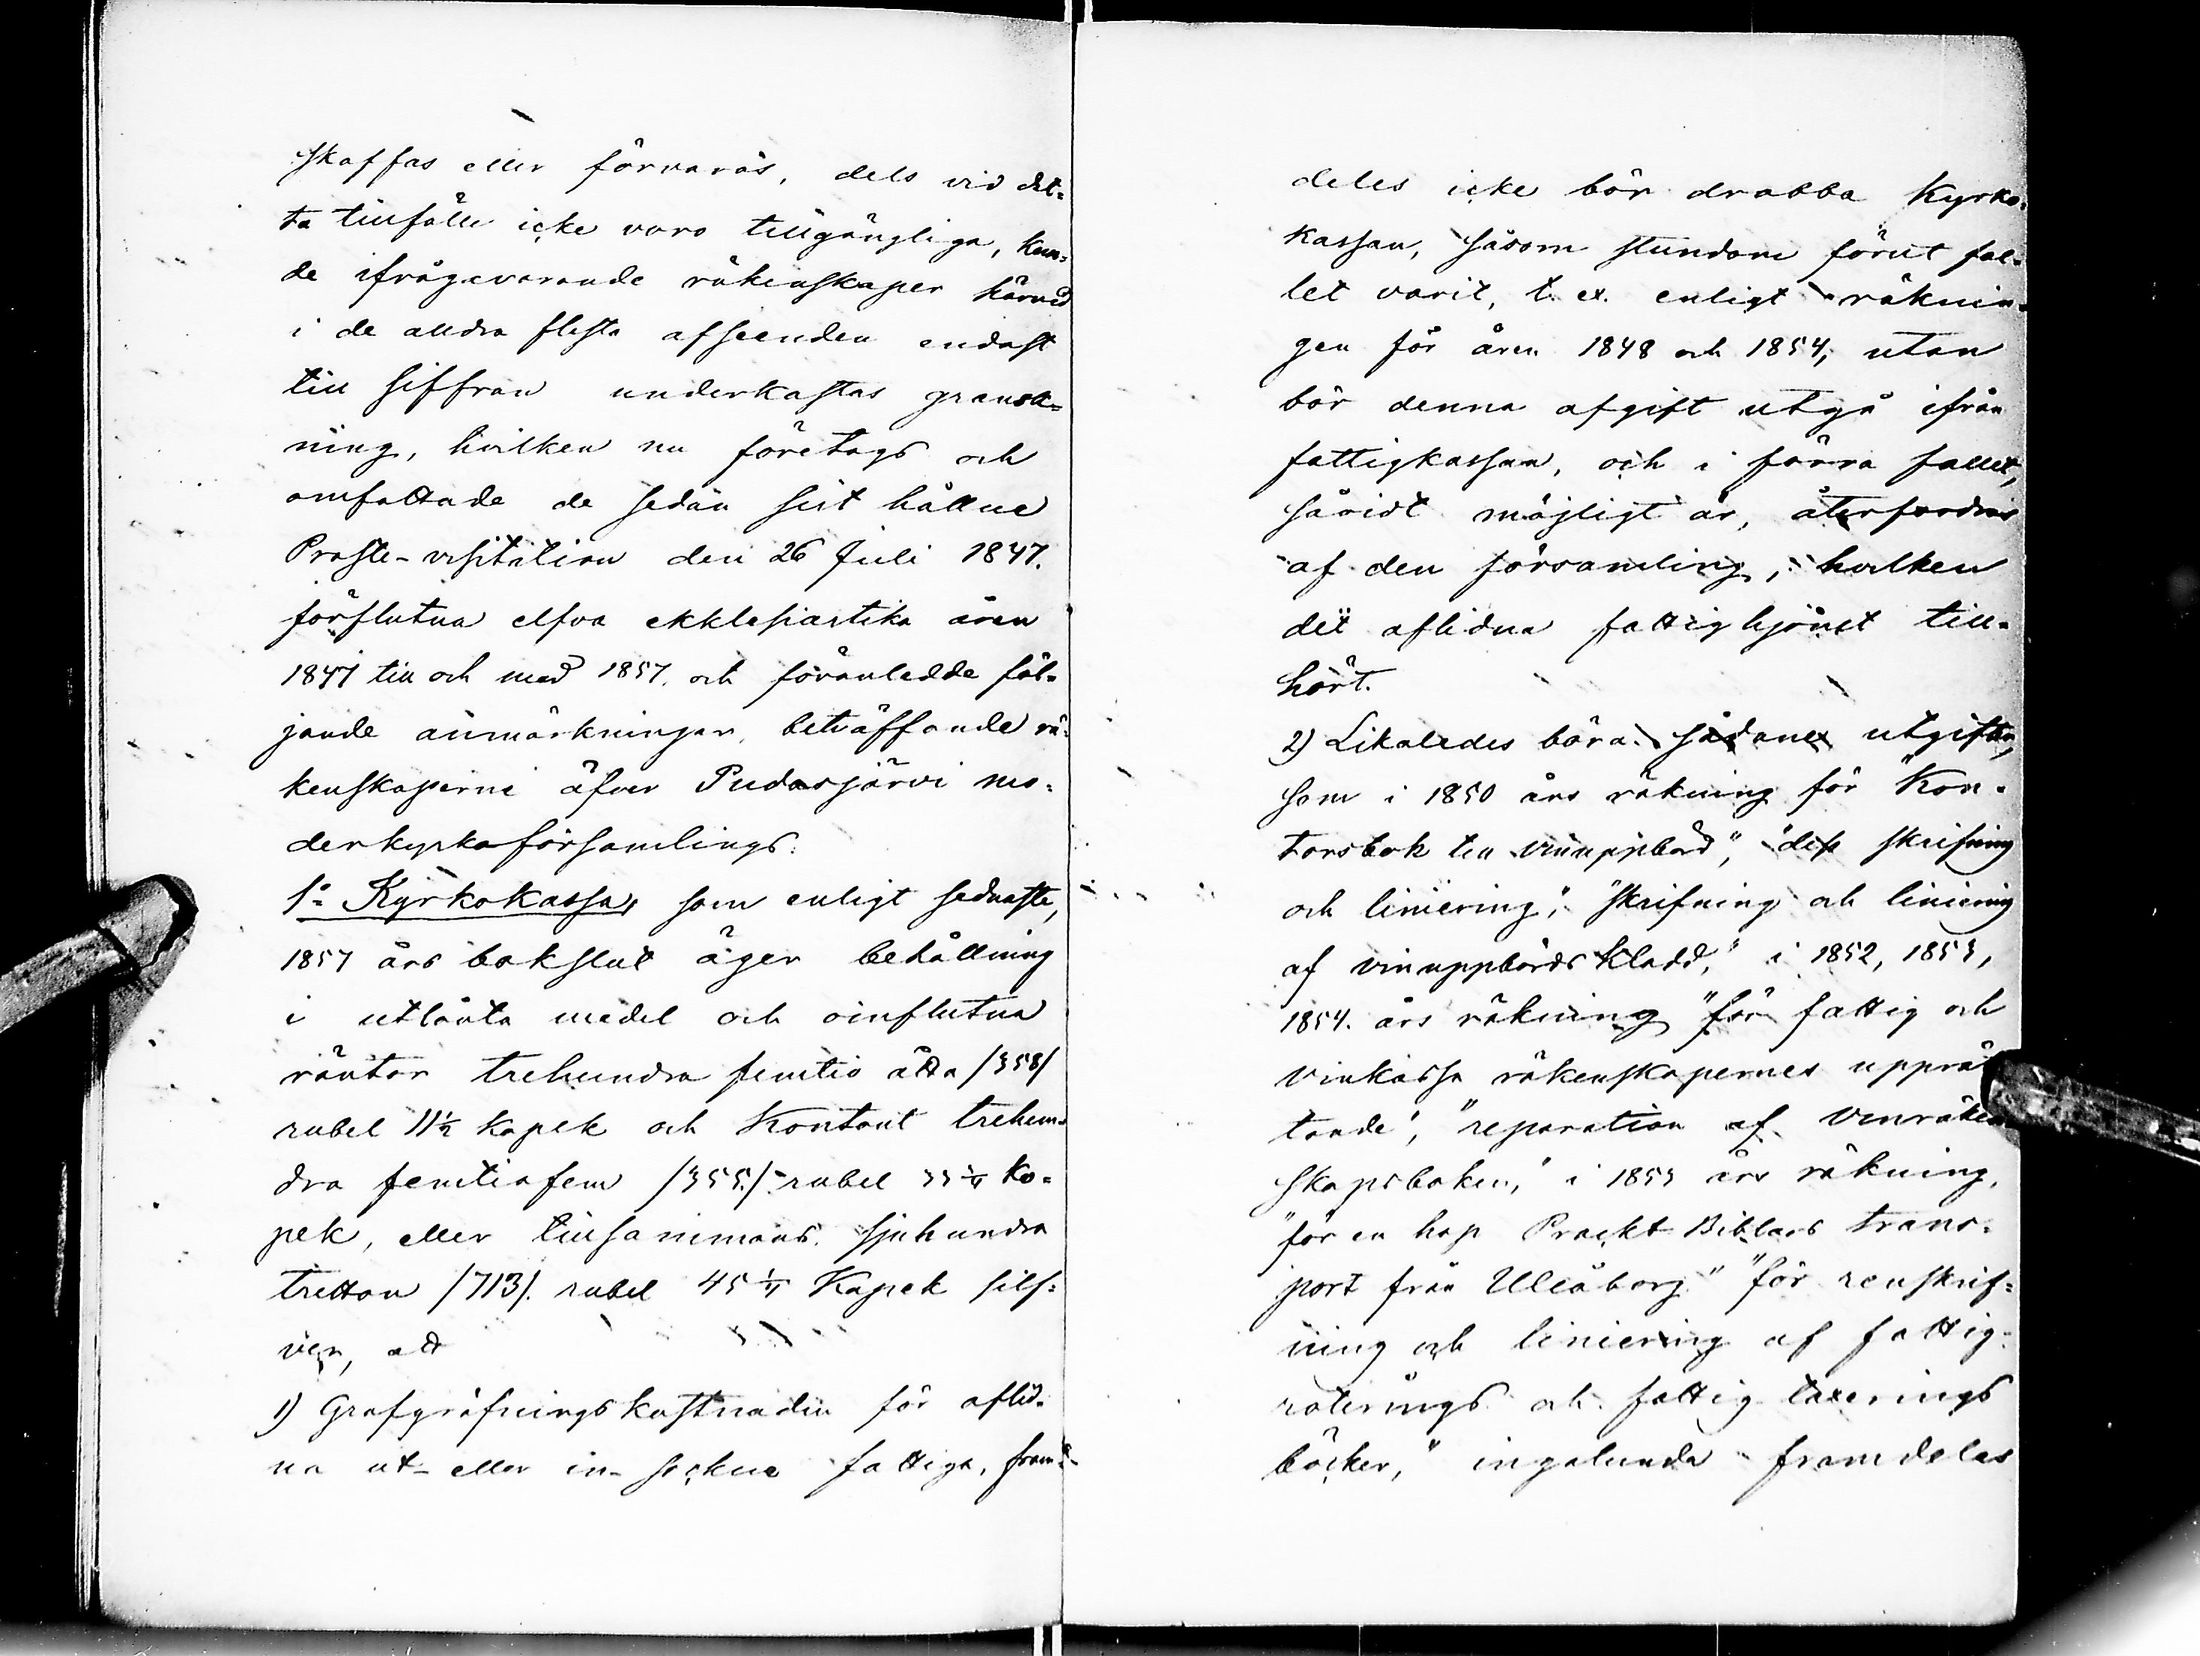 skaffas eller förvaras, dels vid det-
ta tillfälle icke voro tillgängliga, kun-
de ifrågavarande räkenskaper härvid
i de aldra flesta afseenden endast
till siffran underkastas gransk-
ning, hvilken nu företogs och
omfattade de sedan sist hållne
Proste-visitation den 26 Juli 1847.
förflutna elfva ekklesiastika åren
1847 till och med 1857. och föranledde föl-
jande anmärkningar, beträffande rä-
kenskaperne öfver Pudasjärvi mo-
derkyrkoförsamlings.
1o Kyrkokassa, som enligt sednaste,
1857 års bokslut äger behållning
i utlånta medel och oinflutna
räntor trehundra femtio åtta /358/
rubel 11½ kopek och Kontant trehun-
dra femtiofem /355./. rubel ko-
pek, eller tillsammans sjuhundra
tretton /713/. rubel 45 Kopek silf-
ver, att
1) Grafgräfningskostnaden för aflid-
na ut- eller in- sockne fattiga, fram-
deles icke bör drabba Kyrko-
kassan, såsom stundom förut fal-
let varit, t. ex. enligt räknin-
gen för åren 1848 och 1854, utan
bör denna afgift utgå ifrån
fattigkassan, och i förra fallet,
såvidt möjligt är, återfordras
af den församling, hvilken
det aflidna fattighjonet till-
hört.
2) Likaledes böra sådane utgifter,
som i 1850 års räkning för "Kon-
torsbok till vinuppbörd", "dess skrifning
och liniering", "skrifning och liniering
af vinuppbörds kladd," i 1852, 1853,
1854. års räkning "för fattig och
vinkassa räkenskapernes upprät-
tande", "reparation af vinräken-
skapsboken," i 1853 års räkning,
"för en hop Prackt Biblars trans-
port från Uleåborg" "för renskrif-
ning och liniering af fattig-
roterings och fattig taxerings
böcker," ingalunda framdeles